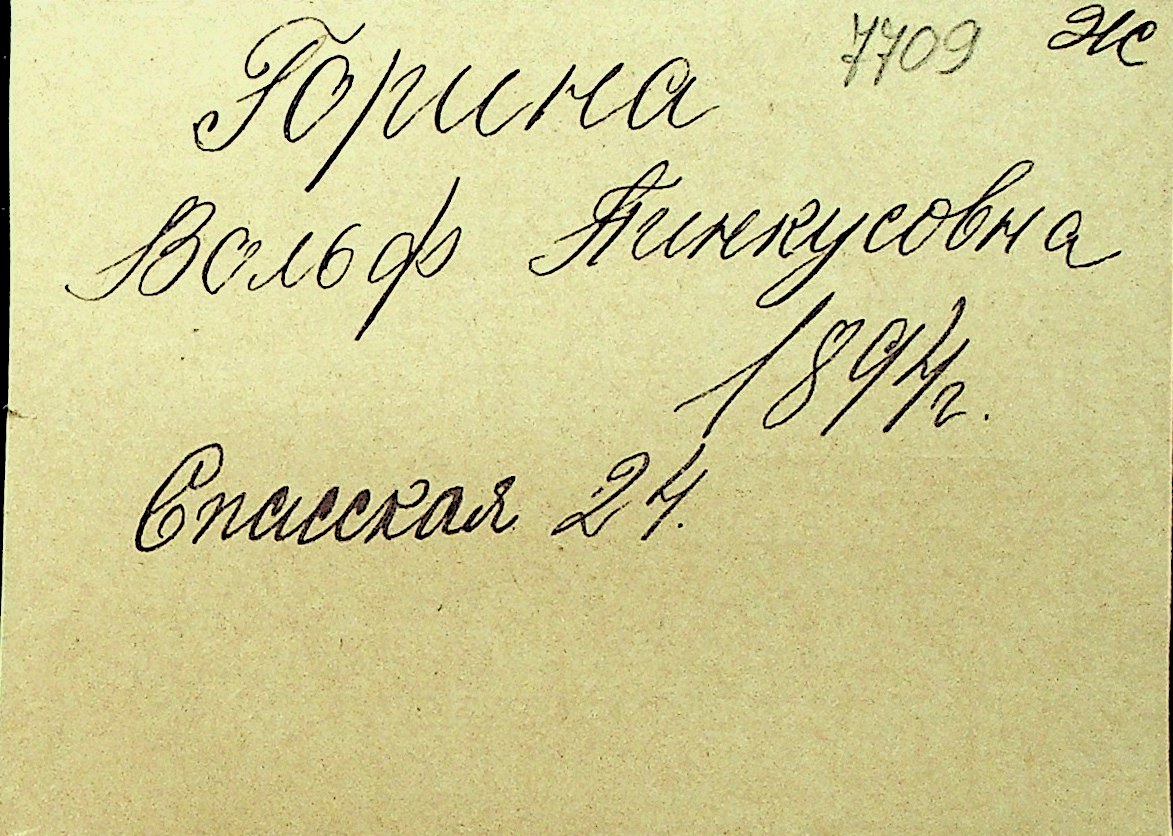 7709 Ж
Горина
Вольф Пинкусовна
1894г.
Спасская 24.